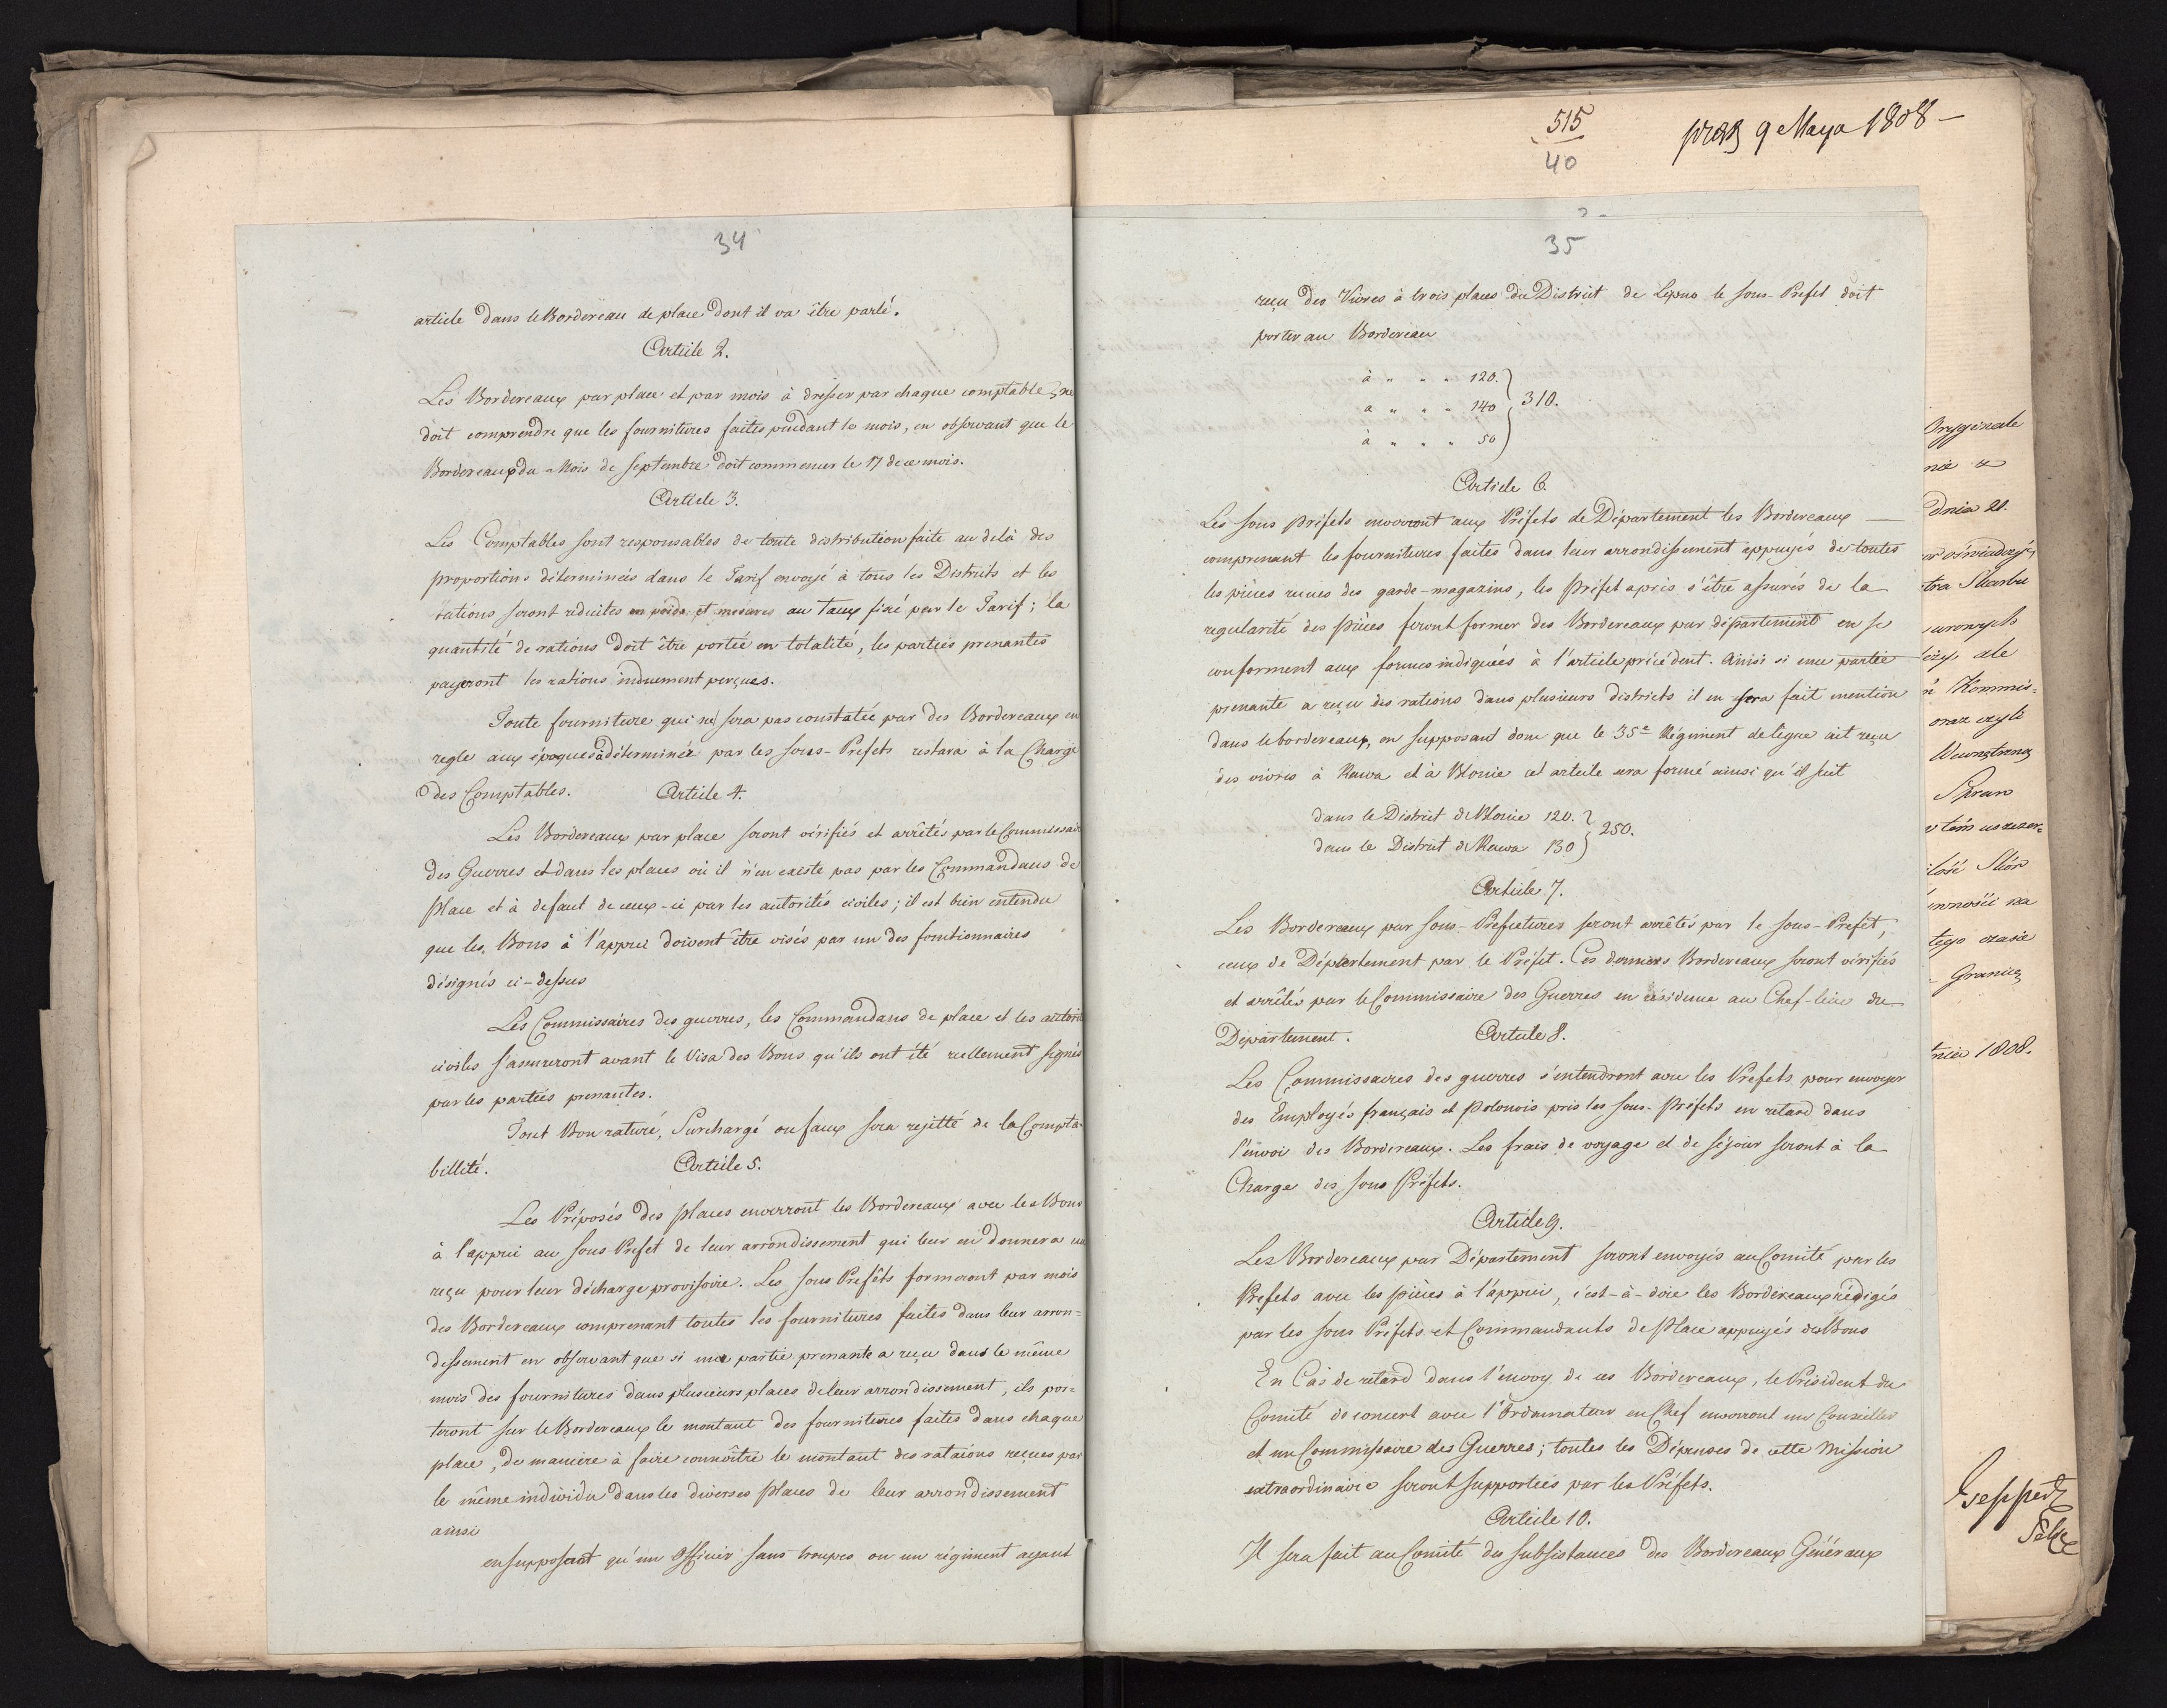 34
article dans le Bordereau de place dont il va être parlé.
Article 2.
Les Bordereaux par place et par mois à dresser par chaque comptable, ne
doit comprendre que les fournitures faites pendant le mois, en observant que le
Bordereaux du Mois de Septembre doit commencer le 17 de ce mois.
Article 3.
Les Comptables sont responsables de toute distribution faite au delà des
proportions déterminées dans le Tarif envoyé à tous les Districts et les
rations seront réduites en poids et mesures au Taux fixé par le Tarif; la
quantité de rations doit être portée en totalité, les parties prenantes
payeront les rations induement perçues.
Toute fourniture qui ne sera pas constatée par des Bordereaux en
regle aux époques à déterminée par les sous-Prefets restara à la Charge
des Comptables. Article 4.
Les Bordereaux par place seront vérifiés et arrêtés par le Commissaire
des Guerres et dans les places où il n'en existe pas par les Commandans de
place et à defaut de ceux-ci par les autorités civiles; il est bien entendu
que les Bons à l'appui doivent être visés par un des fonctionnaires
désignés ci-dessus
Les Commissaires des guerres, les Commandans de place et les autorités
civiles s'assureront avant le Visa des Bons qu'ils ont été réellement signés
par les parties prenantes.
Tout Bon raturé, Surchargé ou faux sera rejitté de la Compta-
billité. Article 5.
Les Préposés des places enverront les Bordereaux avec les Bons
à l'appui au sous Prefet de leur arrondissement qui leur en donnera un
reçu pour leur décharge provisoire. Les sous Prefêts formeront par mois
des Bordereaux comprenant toutes les fournitures faites dans leur arron=
dissement en observant que si une partie prenante a reçu dans le même
mois des fournitures dans plusieurs places de leur arrondissement, ils por=
teront sur le Bordereaux le montant des fournitures faites dans chaque
place, de maniere à faire connoître le montant des rataions reçues par
le même individu dans les diverses places de leur arrondissement
ainsi
en supposant qu'un Officier sans troupes ou un régiment ayant
515
40
9 Maya 1808 -
35
reçu des Vivres à trois places du District de Lepno le sous-Prefet doit
porter au Bordereau
à " " " 120.
a " " " 140 } 310.
à " " " 50
Article 6.
Les sous préfets enverront aux Préfets de Département les Bordereaux
comprenant les fournitures faites dans leur arrondissement appuyés de toutes
les pièces reçues des garde-magazins, les Préfet après s'être assurés de la
regularité des pièces feront former des Bordereaux par département en se
conforment aux formes indiquées à l'article précédent. Ainsi si une partie
prenante a reçu des rations dans plusieurs districts il en sera fait mention
dans le bordereaux, en supposant donc que le 35e Régiment de ligne ait reçu
des vivres à Rawa et à Blonie cet article sera formé ainsi qu'il suit
dans le District de Blonie 120. } 250.
dans le District de Rawa 130
Article 7.
Les Bordereaux par sous-Prefectures seront arrêtés par le sous-Prefet,
ceux de Département par le Préfet. Ces derniers Bordereaux seront vérifiés
et arrêtés par le Commissaire des Guerres en résidence au Chef-lieu du
Departement. Article 8.
Les Commissaires des guerres s'entendront avec les Prefets pour envoyer
des Employés français et polonois près les sous-Préfets en retard dans
l'envoi des Bordereaux. Les frais de voyage et de séjour seront à la
Charge des sous Préfets.
Article 9.
Les Bordereaux par Département seront envoyés au Comité par les
Prefets avec les pièces à l'appui, c'est-à-dire les Bordereaux rédigés
par les sous Préfets et Commandants de place appuyés des Bons
En Cas de retard dans l'envoy de ces Bordereaux, le Président du
Comité de concert avec l'Ordonnateur en Chef enverront un Conseiller
et un Commissaire des Guerres; toutes les Dépenses de cette Mission
extraordinaire seront supportées par les Préfets.
Article 10.
Il sera fait au Comité des Subsistances des Bordereaux Généraux
Oryginale
nie
dnia 21.
tra Skarbu
ale
Kommis=
oraz czyli
Wewnętrzną
Skór
tego czasie
Granicą
tnia 1808.